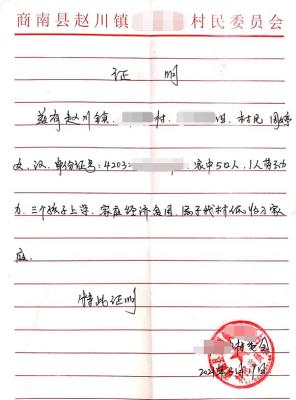 商南县赵川镇 村民委员会
证明
兹有赵川镇, 村, 组, 村民周
女、汉、身份证号:4203 , 家中5口人, 1人劳动
力、三个孩子上学、家庭经济困, 属于我村低收入家
庭。
特此证明
村委会
2021年 月19日